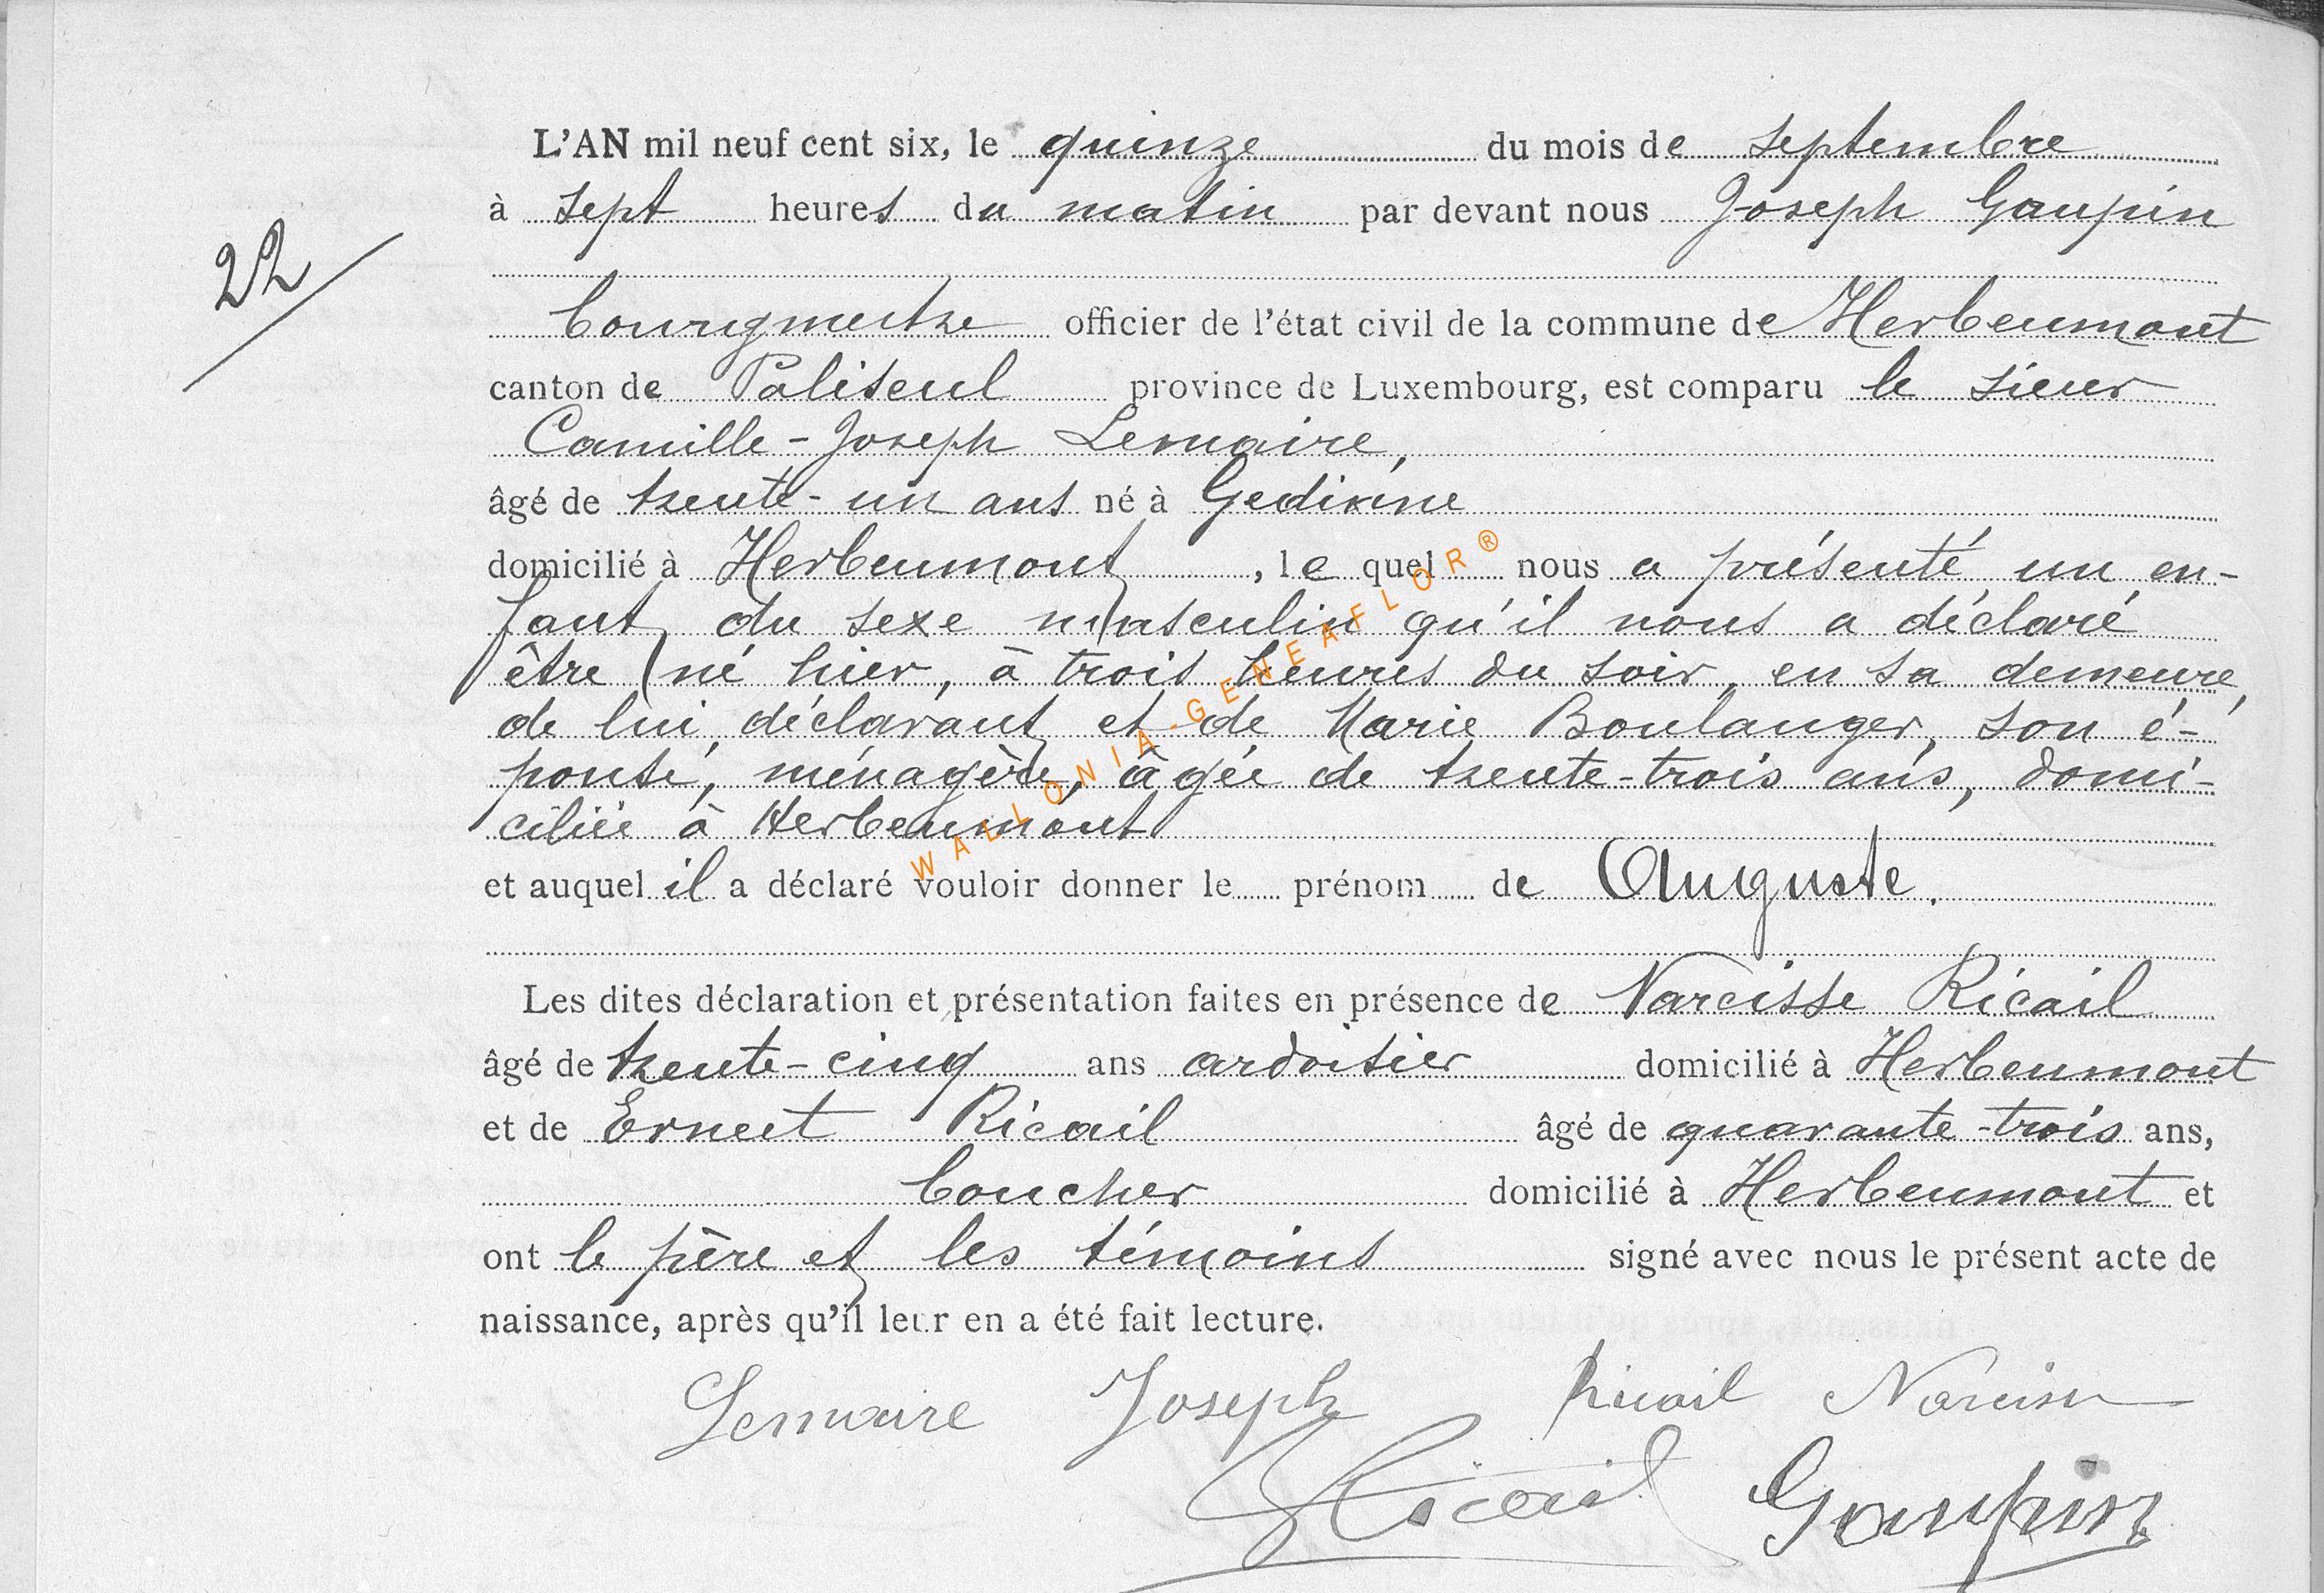 L'AN mil neuf cent six, le quinze du mois de septembre
à sept heures du matin par devant nous Joseph Gaupin
22
bourgmestre officier de l'état civil de la commune de Herbeumont
canton de Paliseul province de Luxembourg, est comparu le sieur
Camille-Joseph Lemaire,
âgé de trente-un ans né à Gedinne
domicilié à Herbeumont, le quel nous a présenté un en-
fant du sexe masculin qu'il nous a déclaré
être né hier, à trois heures du soir, en sa demeure,
de lui, déclarant et de Marie Boulanger, son é-
pouse, ménagère, âgée de trente-trois ans, domi-
ciliée à Herbeumont
WALLONIA-GENEAFLOR®
et auquel il a déclaré vouloir donner le prénom de Auguste.
Les dites déclaration et présentation faites en présence de Narcisse Ricail
âgé de trente-cinq ans ardoisier domicilié à Herbeumont
et de Ernest Ricail âgé de quarante-trois ans,
boucher domicilié à Herbeumont et
ont le père et les témoins signé avec nous le présent acte de
naissance, après qu'il leur en a été fait lecture.
Lemaire Joseph Ricail Narcisse
Ricail Gaupin